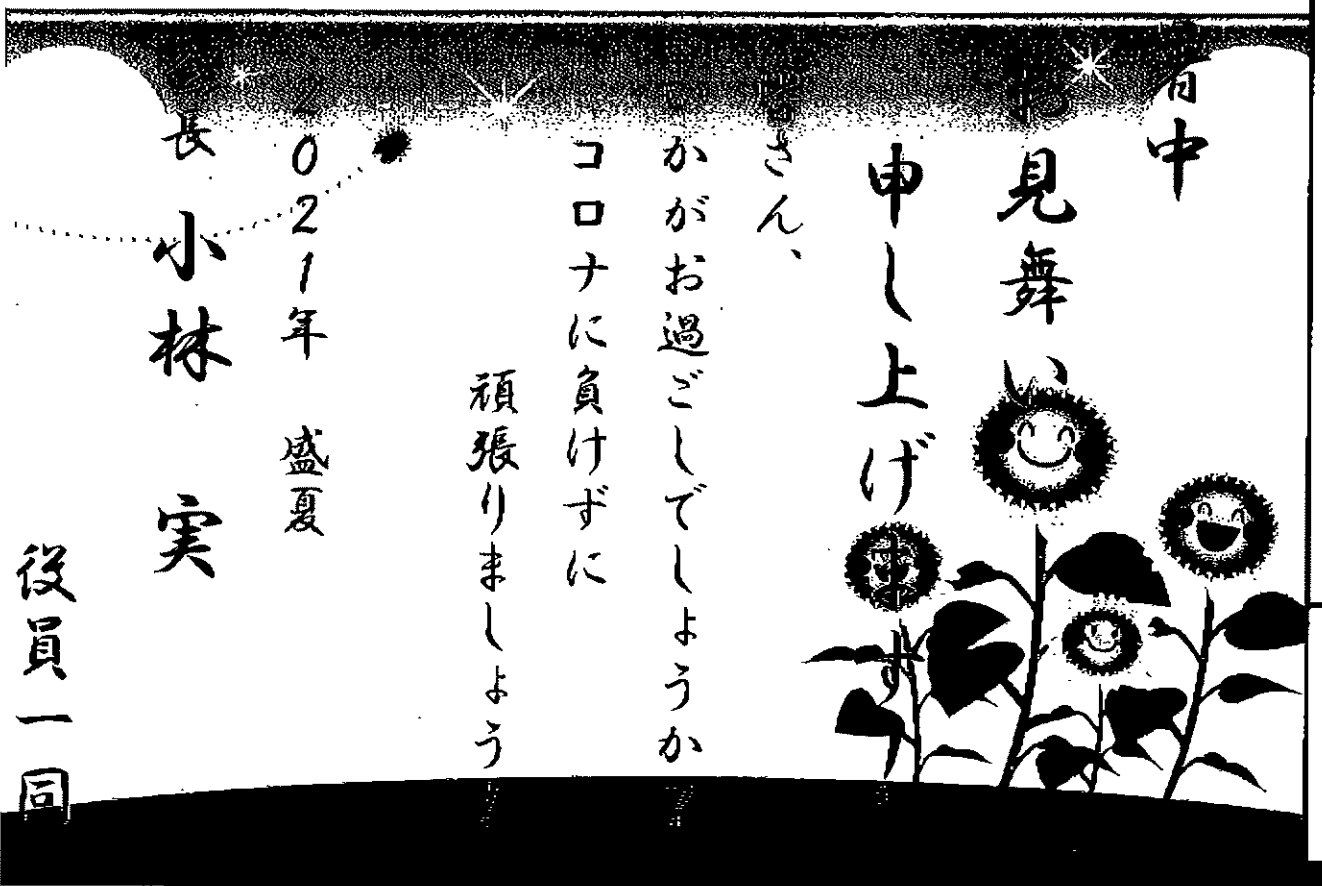 暑中
お見舞い
申し上げます
皆さん、
かがお過ごしでしょうか
コロナに負けずに
頑張りましょう
2021年 盛夏
長 小林 実
役員一同